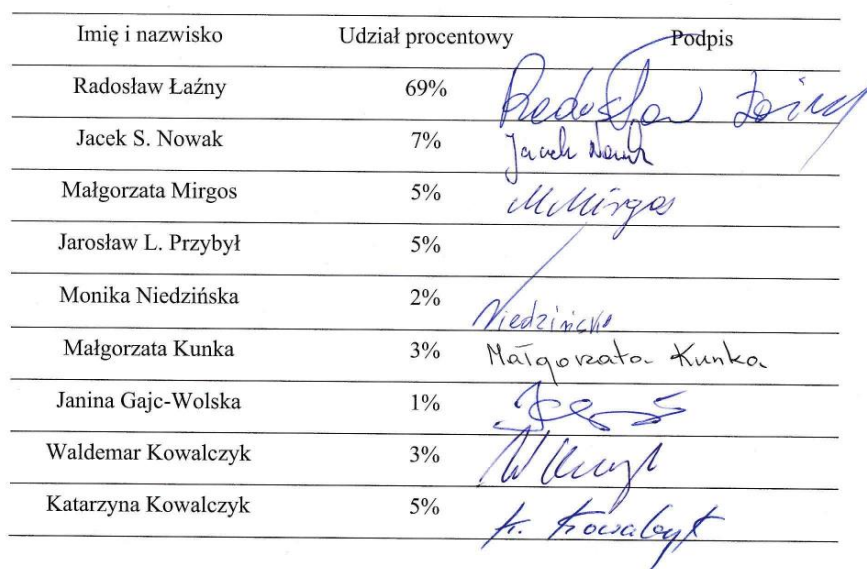 Imię i nazwisko Udział procentowy Podpis
Radosław Łaźny 69% Radosław Łaźny
Jacek S. Nowak 7% Jacek Nowak
Małgorzata Mirgos 5% MMirgos
Jarosław L. Przybył 5%
Monika Niedzińska 2% Niedzińska
Małgorzata Kunka 3% Małgorzata Kunka
Janina Gajc-Wolska 1%
Waldemar Kowalczyk 3%
Katarzyna Kowalczyk 5% K. Kowalczyk